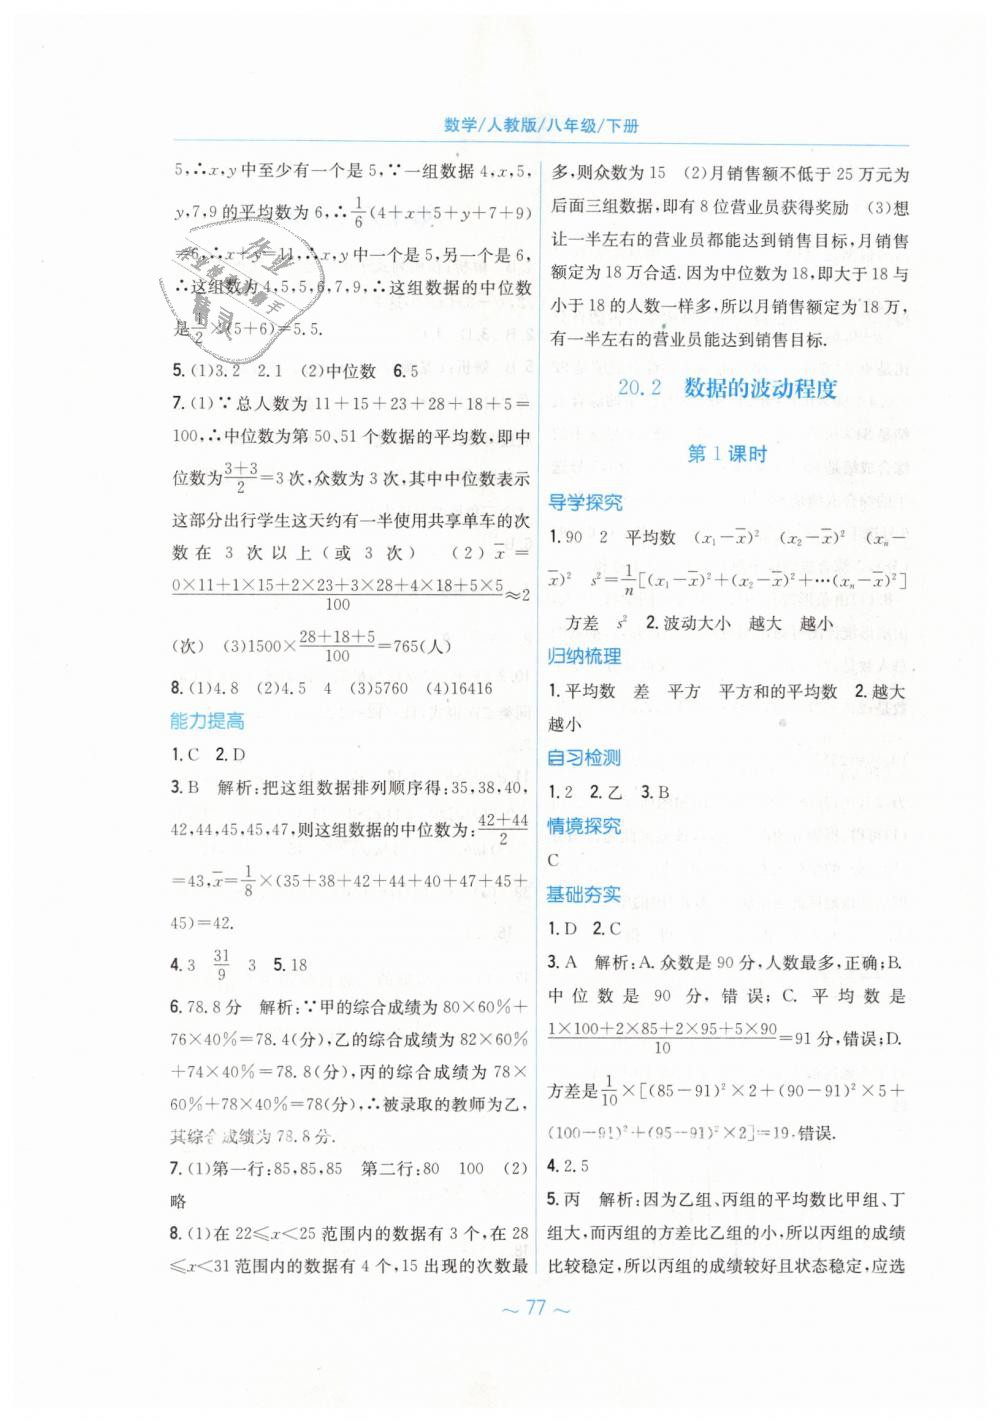 数学/人教版/八年级/下册
5,∴x,y中至少有一个是5,∵一组数据4,x,5,
y,7,9的平均数为6,∴1/6(4+x+5+y+7+9)
=6,∴x+y=11,∴x,y中一个是5,另一个是6,
∴这组数据为4,5,5,6,7,9,∴这组数据的中位数
是1/2×(5+6)=5.5.
5.(1)3.2 2.1 (2)中位数 6.5
7.(1)∵总人数为11+15+23+28+18+5=
100,∴中位数为第50、51个数据的平均数,即中
位数为(3+3)/2=3次,众数为3次,其中中位数表示
这部分出行学生这天约有一半使用共享单车的次
数在3次以上(或3次) (2)x̄=
(0×11+1×15+2×23+3×28+4×18+5×5)/100≈2
(次) (3)1500×(28+18+5)/100=765(人)
8.(1)4.8 (2)4.5 4 (3)5760 (4)16416
能力提高
1.C 2.D
3.B 解析:把这组数据排列顺序得:35,38,40,
42,44,45,45,47,则这组数据的中位数为:(42+44)/2
=43,x̄=1/8×(35+38+42+44+40+47+45+
45)=42.
4.3 31/9 3 5.18
6.78.8分 解析:∵甲的综合成绩为80×60%+
76×40%=78.4(分),乙的综合成绩为82×60%
+74×40%=78.8(分),丙的综合成绩为78×
60%+78×40%=78(分),∴被录取的教师为乙,
其综合成绩为78.8分.
7.(1)第一行:85,85,85 第二行:80 100 (2)
略
8.(1)在22≤x<25范围内的数据有3个,在28
≤x<31范围内的数据有4个,15出现的次数最
多,则众数为15 (2)月销售额不低于25万元为
后面三组数据,即有8位营业员获得奖励 (3)想
让一半左右的营业员都能达到销售目标,月销售
额定为18万合适.因为中位数为18,即大于18与
小于18的人数一样多,所以月销售额定为18万,
有一半左右的营业员能达到销售目标.
20.2 数据的波动程度
第1课时
导学探究
1.90 2 平均数 (x₁-x̄)² (x₂-x̄)² (xₙ-
x̄)² s²=1/n[(x₁-x̄)²+(x₂-x̄)²+…(xₙ-x̄)²]
方差 s² 2.波动大小 越大 越小
归纳梳理
1.平均数 差 平方 平方和的平均数 2.越大
越小
自习检测
1.2 2.乙 3.B
情境探究
C
基础夯实
1.D 2.C
3.A 解析:A.众数是90分,人数最多,正确;B.
中位数是90分,错误;C.平均数是
(1×100+2×85+2×95+5×90)/10=91分,错误;D.
方差是1/10×[(85-91)²×2+(90-91)²×5+
(100-91)²+(95-91)²×2]=19.错误.
4.2.5
5.丙 解析:因为乙组、丙组的平均数比甲组、丁
组大,而丙组的方差比乙组的小,所以丙组的成绩
比较稳定,所以丙组的成绩较好且状态稳定,应选
~ 77 ~